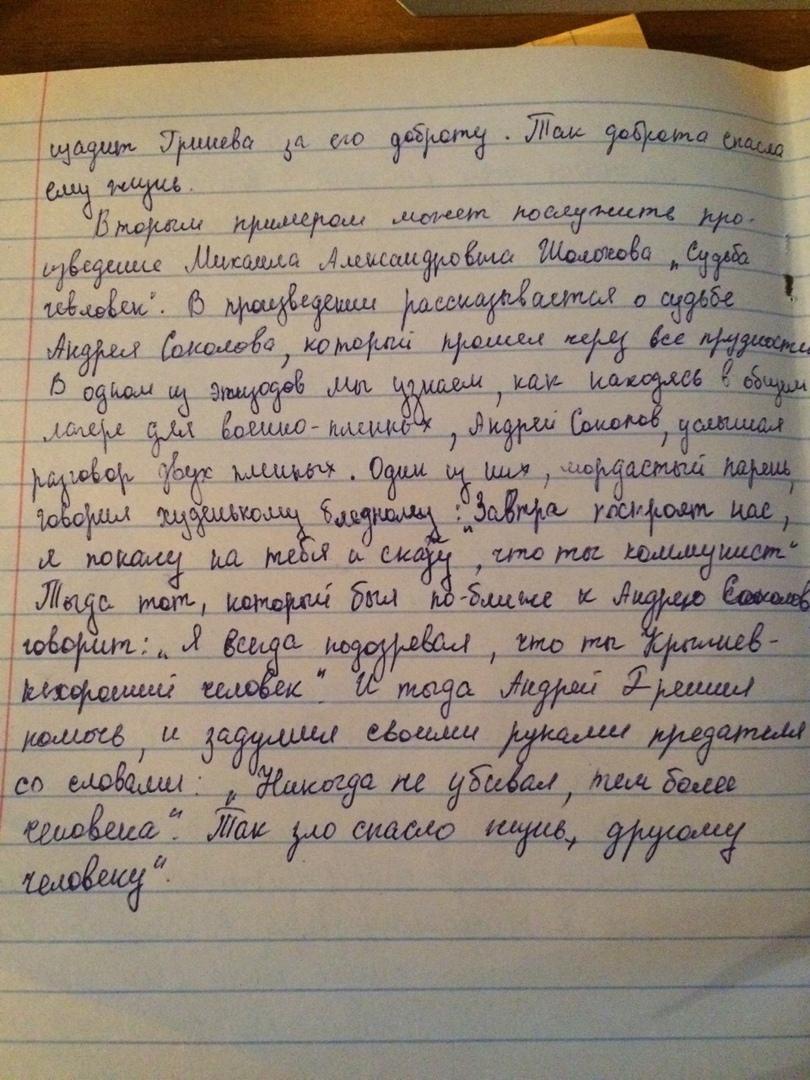 щадит Гринева за его доброту. Так доброта спасла
ему жизнь.
Вторым примером может послужить про-
изведение Михаила Александровича Шолохова „Судьба
человек". В произведении рассказывается о судьбе
Андрея Соколова, который прошел через все трудности
В одном из эпизодов мы узнаем, как находясь в общем
лагере для военно-пленных, Андрей Соколов, услышал
разговор двух пленных. Один из них, мордастый парень,
говорил худенькому бледному: „Завтра построят нас,
я покажу на тебя и скажу, что ты коммунист"
Тогда тот, который был по-ближе к Андрею Соколов
говорит: „Я всегда подозревал, что ты Крыжнев-
нехороший человек". И тогда Андрей решил
помочь, и задушил своими руками предателя
со словами: „Никогда не убивал, тем более
человека". Так зло спасло жизнь, другому
человеку".